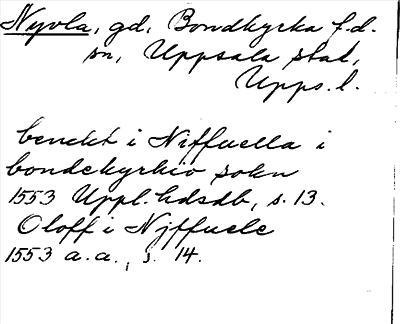 Nyvla, gd, Bondkyrka f.d.
sn, Uppsala stad,
Upps. l.
benckt i Niffuella i
bondekyrkio sokn
1553 Uppl. hdsdb, s. 13.
Oloff i Njffuele
1553 a.a., s. 14.